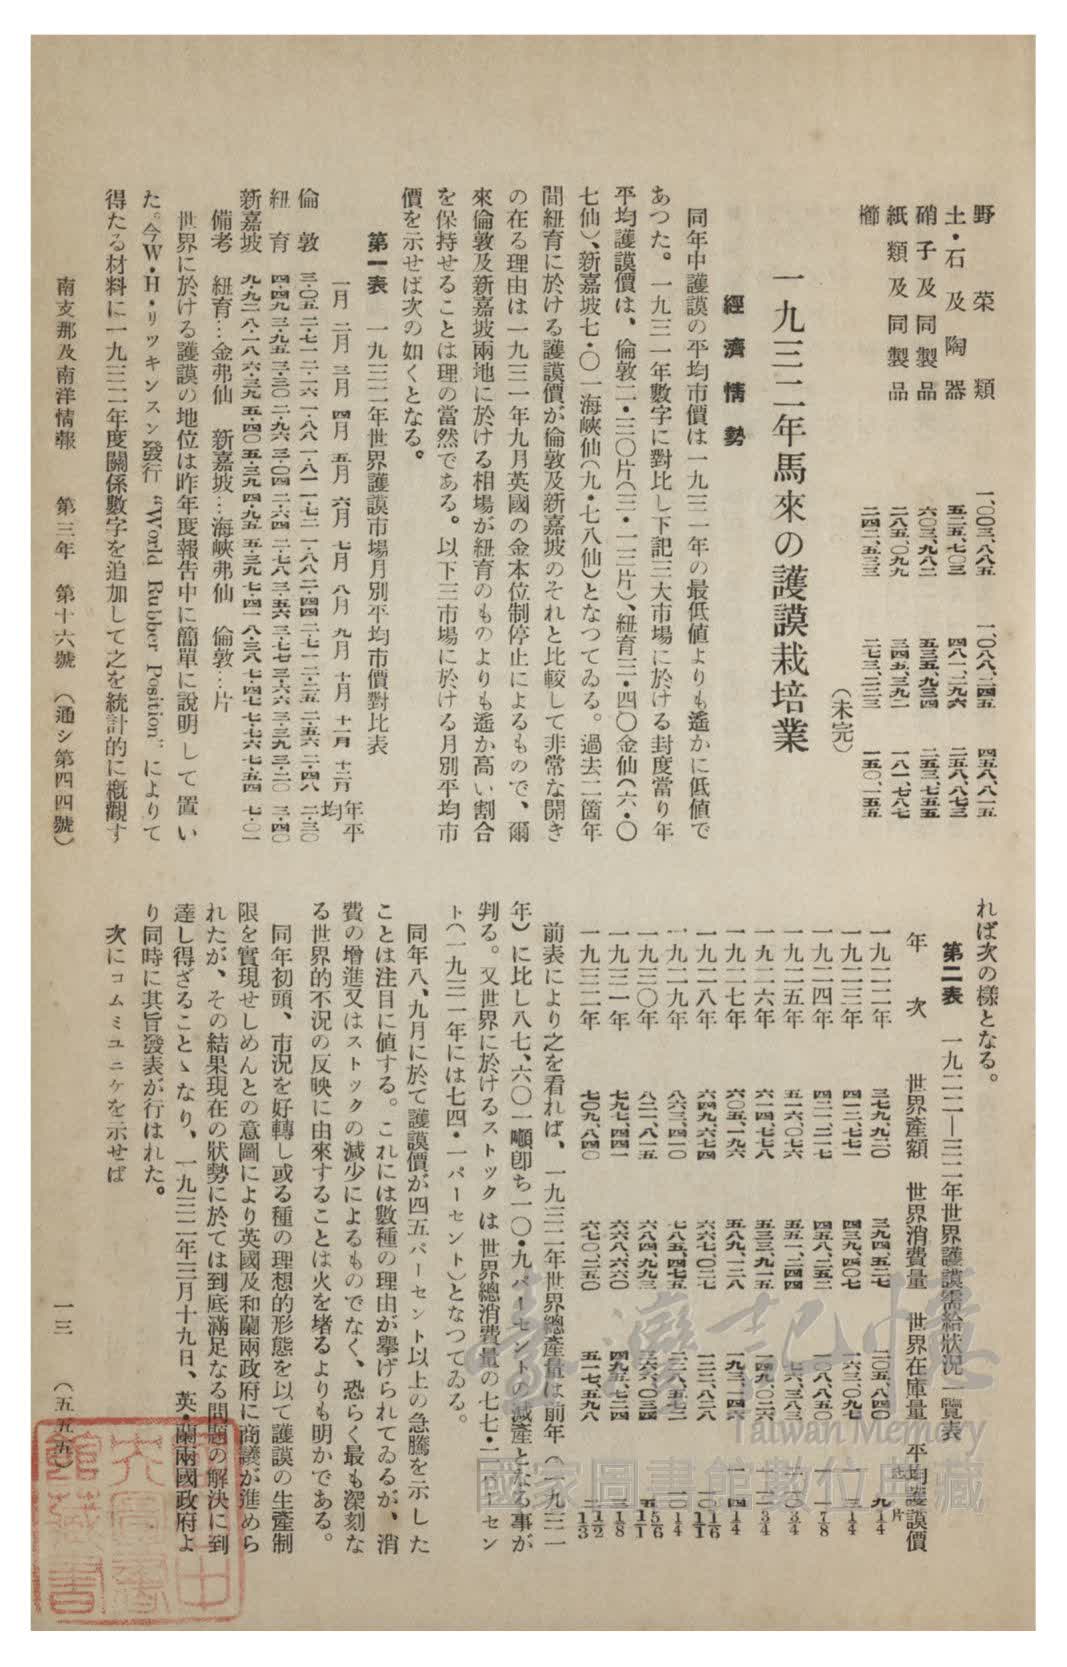 野菜類 一、〇〇三、八八五 一、〇八八、二四五 四五八、八一五
土・石及陶器 五二五、七〇三 四八一、二九六 二五八、八七三
硝子及同製品 六〇三、九八二 五三五、九三四 二五三、七五五
紙類及同製品 二八五、〇九九 三四五、三九二 一八一、七八七
櫛 二四二、五三三 二七三、二二三 一五〇、一五五
(未完)
一九三二年馬來の護謨栽培業
經濟情勢
同年中護謨の平均市價は一九三一年の最低値よりも遙かに低値で
あつた。一九三一年數字に對比し下記三大市場に於ける封度當り年
平均護謨價は、倫敦二・三〇片(三・一三片)、紐育三・四〇金仙(六・〇
七仙)、新嘉坡七・〇一海峽仙(九・七八仙)となつてゐる。過去二箇年
間紐育に於ける護謨價が倫敦及新嘉坡のそれと比較して非常な開き
の在る理由は一九三一年九月英國の金本位制停止によるもので、爾
來倫敦及新嘉坡兩地に於ける相場が紐育のものよりも遙か高い割合
を保持せることは理の當然である。以下三市場に於ける月別平均市
價を示せば次の如くとなる。
第一表 一九三二年世界護謨市場月別平均市價對比表
一月 二月 三月 四月 五月 六月 七月 八月 九月 十月 十一月 十二月 年平均
倫敦 三・〇五 二・七一 二・二六 一・八八 一・八一 一・七二 一・八八 二・四四 二・七一 二・二五 二・五六 二・四八 二・三〇
紐育 四・四九 三・九五 三・三〇 二・九六 三・〇四 二・六四 二・七八 三・五六 三・七七 三・六六 三・三九 三・二〇 三・四〇
新嘉坡 九・九二 八・一八 六・三九 五・四〇 五・三九 四・九五 五・三九 七・四一 八・三八 七・四七 七・七六 七・五四 七・〇一
備考 紐育…金弗仙 新嘉坡…海峽弗仙 倫敦…片
世界に於ける護謨の地位は昨年度報告中に簡單に說明して置い
た。今W・H・リッキンスン發行“World Rubber Position”によりて
得たる材料に一九三二年度關係數字を追加して之を統計的に槪觀す
れば次の樣となる。
第二表 一九二二—三二年世界護謨需給狀況一覽表
年次 世界產額 世界消費量 世界在庫量 平均護謨價
志 片
一九二二年 三七九、九二〇 三九四、五二七 二〇五、八四〇 九1/4
一九二三年 四一二、七七一 四三九、四〇七 一六三、〇九七 一 三1/4
一九二四年 四二一、二一七 四五八、二五二 一〇八、八五〇 一 一7/8
一九二五年 五一六、〇七六 五五一、二四四 七六、三八三 二 〇3/4
一九二六年 六一四、七七八 五三三、九一五 一四九、〇二六 一 一一3/4
一九二七年 六〇五、一九六 五八九、一二八 一九三、一四六 一 四1/4
一九二八年 六四九、六七四 六六七、〇二七 一二二、八二八 一〇11/16
一九二九年 八六三、四一〇 七八五、四七五 二二八、五七二 一〇1/4
一九三〇年 八二一、八一五 六八四、九九三 三六六、〇三四 五
一九三一年 七九七、四四一 六六八、六六〇 四九五、七二四 三1/8
一九三二年 七〇九、八四〇 六七〇、二五〇 五一七、五九八 二
前表により之を看れば、一九三二年世界總產量は前年(一九三一
年)に比し八七、六〇一噸卽ち一〇・九パーセントの減產となる事が
判る。又世界に於けるストックは世界總消費量の七七・二パーセン
ト(一九三一年には七四・一パーセント)となつてゐる。
同年八、九月に於て護謨價が四五パーセント以上の急騰を示した
ことは注目に値する。これには數種の理由が擧げられてゐるが、消
費の增進又はストックの減少によるものでなく、恐らく最も深刻な
る世界的不況の反映に由來することは火を堵るよりも明かである。
同年初頭、市況を好轉し或る種の理想的形態を以て護謨の生產制
限を實現せしめんとの意圖により英國及和蘭兩政府に商議が進めら
れたが、その結果現在の狀勢に於ては到底滿足なる問題の解決に到
達し得ざることゝなり、一九三二年三月十九日、英・蘭兩國政府よ
り同時に其旨發表が行はれた。
次にコムミユニケを示せば
南支那及南洋情報 第三年 第十六號 (通シ第四四號) 一三 (五五五)
臺灣記憶
Taiwan Memory
國家圖書館數位典藏